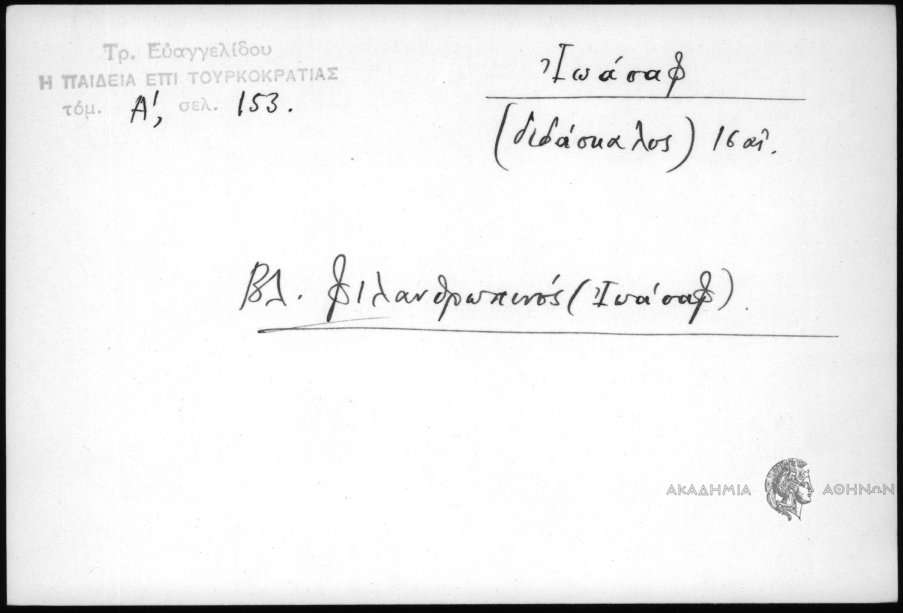 Τρ. Εὐαγγελίδου
Η ΠΑΙΔΕΙΑ ΕΠΙ ΤΟΥΡΚΟΚΡΑΤΙΑΣ
τόμ. Α', σελ. 153.
Ἰωάσαφ
(διδάσκαλος) 16 αἰ.
Βλ. Φιλανθρωπινός (Ἰωάσαφ).
ΑΚΑΔΗΜΙΑ ΑΘΗΝΩΝ